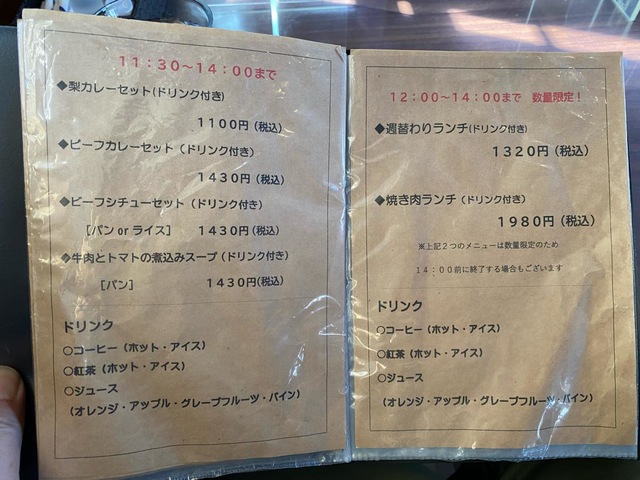 11:30～14:00まで
◆梨カレーセット(ドリンク付き)
1100円(税込)
◆ビーフカレーセット(ドリンク付き)
1430円(税込)
◆ビーフシチューセット(ドリンク付き)
[パン or ライス] 1430円(税込)
◆牛肉とトマトの煮込みスープ(ドリンク付き)
[パン] 1430円(税込)
ドリンク
○コーヒー(ホット・アイス)
○紅茶(ホット・アイス)
○ジュース
(オレンジ・アップル・グレープフルーツ・パイン)
12:00～14:00まで 数量限定!
◆週替わりランチ(ドリンク付き)
1320円(税込)
◆焼き肉ランチ(ドリンク付き)
1980円(税込)
※上記2つのメニューは数量限定のため
14:00前に終了する場合もございます
ドリンク
○コーヒー(ホット・アイス)
○紅茶(ホット・アイス)
○ジュース
(オレンジ・アップル・グレープフルーツ・パイン)